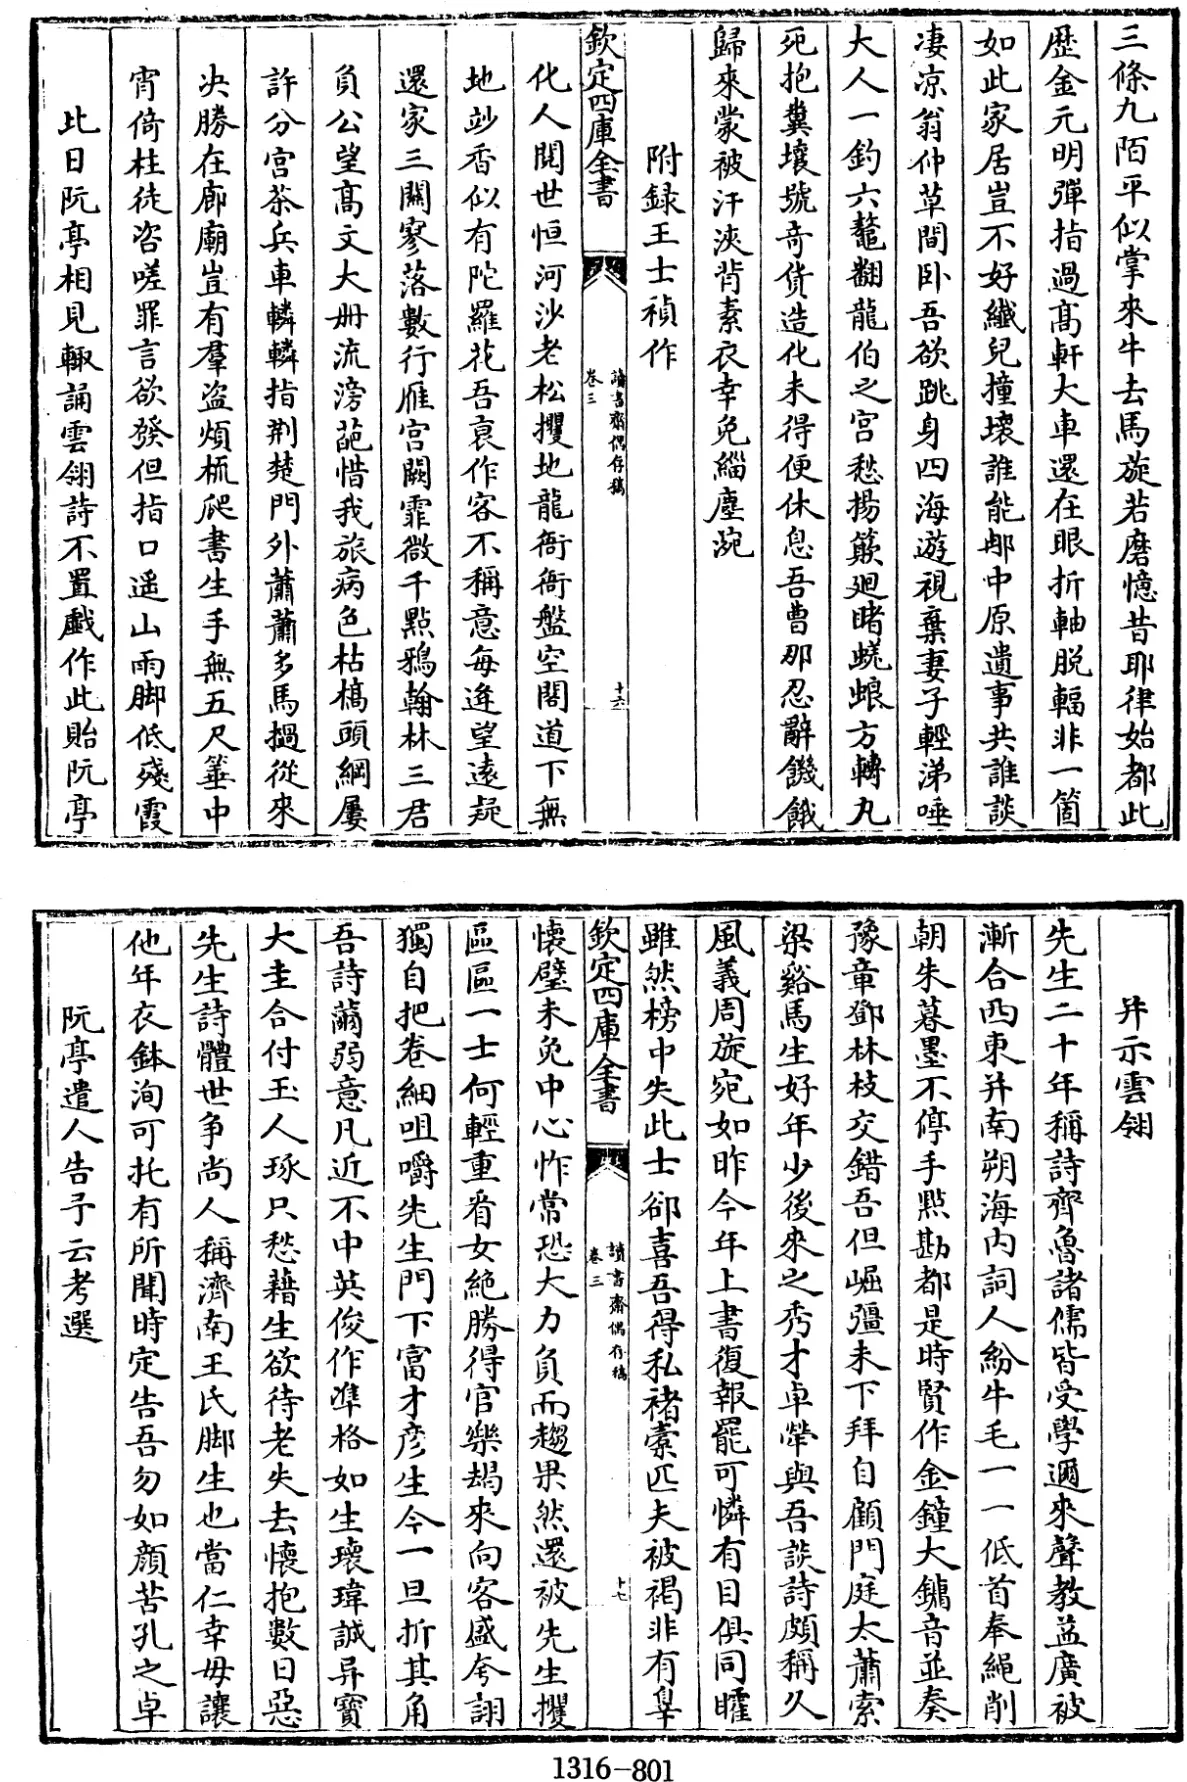 三條九陌平似掌來牛去馬旋若磨憶昔耶律始都此
歷金元明彈指過高軒大車還在眼折軸脱輻非一箇
如此家居豈不好纖兒撞壞誰能郍中原遺事共誰談
凄凉翁仲草間卧吾欲跳身四海遊視棄妻子輕涕唾
大人一釣六鼇翻龍伯之宮愁揚簸廻睹蜣蜋方轉丸
死抱糞壤號奇貨造化未得便休息吾曹那忍辭饑餓
歸來蒙被汗浹背素衣幸免緇塵涴
附録王士禎作
欽定四庫全書
讀書齋偶存稿
卷三
十六
化人閲世恒河沙老松攫地龍衙衙盤空閣道下無
地竗香似有陀羅花吾衰作客不稱意每逢望遠疑
還家三關寥落數行雁宮闕霏微千點鴉翰林三君
負公望高文大册流滂葩惜我旅病色枯槁頭綱屢
許分宮茶兵車轔轔指荆楚門外蕭蕭多馬撾從來
决勝在廊廟豈有羣盜煩梳爬書生手無五尺箠中
宵倚柱徒咨嗟罪言欲發但指口遥山雨脚低殘霞
此日阮亭相見輙誦雲翎詩不置戲作此貽阮亭
幷示雲翎
先生二十年稱詩齊魯諸儒皆受學邇來聲教益廣被
漸合西東幷南朔海内詞人紛牛毛一一低首奉繩削
朝朱暮墨不停手點勘都是時賢作金鐘大鏞音並奏
豫章鄧林枝交錯吾但崛彊未下拜自顧門庭太蕭索
梁谿馬生好年少後來之秀才卓犖與吾談詩頗稱久
風義周旋宛如昨今年上書復報罷可憐有目俱同矐
雖然榜中失此士郤喜吾得私褚橐匹夫被褐非有辠
欽定四庫全書
讀書齋偶存稿
卷三
十七
懷璧未免中心怍常恐大力負而趨果然還被先生攫
區區一士何輕重看女絶勝得官樂朅來向客盛夸詡
獨自把卷細咀嚼先生門下富才彦生今一旦折其角
吾詩薾弱意凡近不中英俊作凖格如生瓌瑋誠异寶
大圭合付玉人琢只愁藉生欲待老失去懷抱數日惡
先生詩體世争尚人稱濟南王氏脚生也當仁幸毋讓
他年衣鉢洵可托有所聞時定告吾勿如顔苦孔之卓
阮亭遣人告予云考選
1316-801